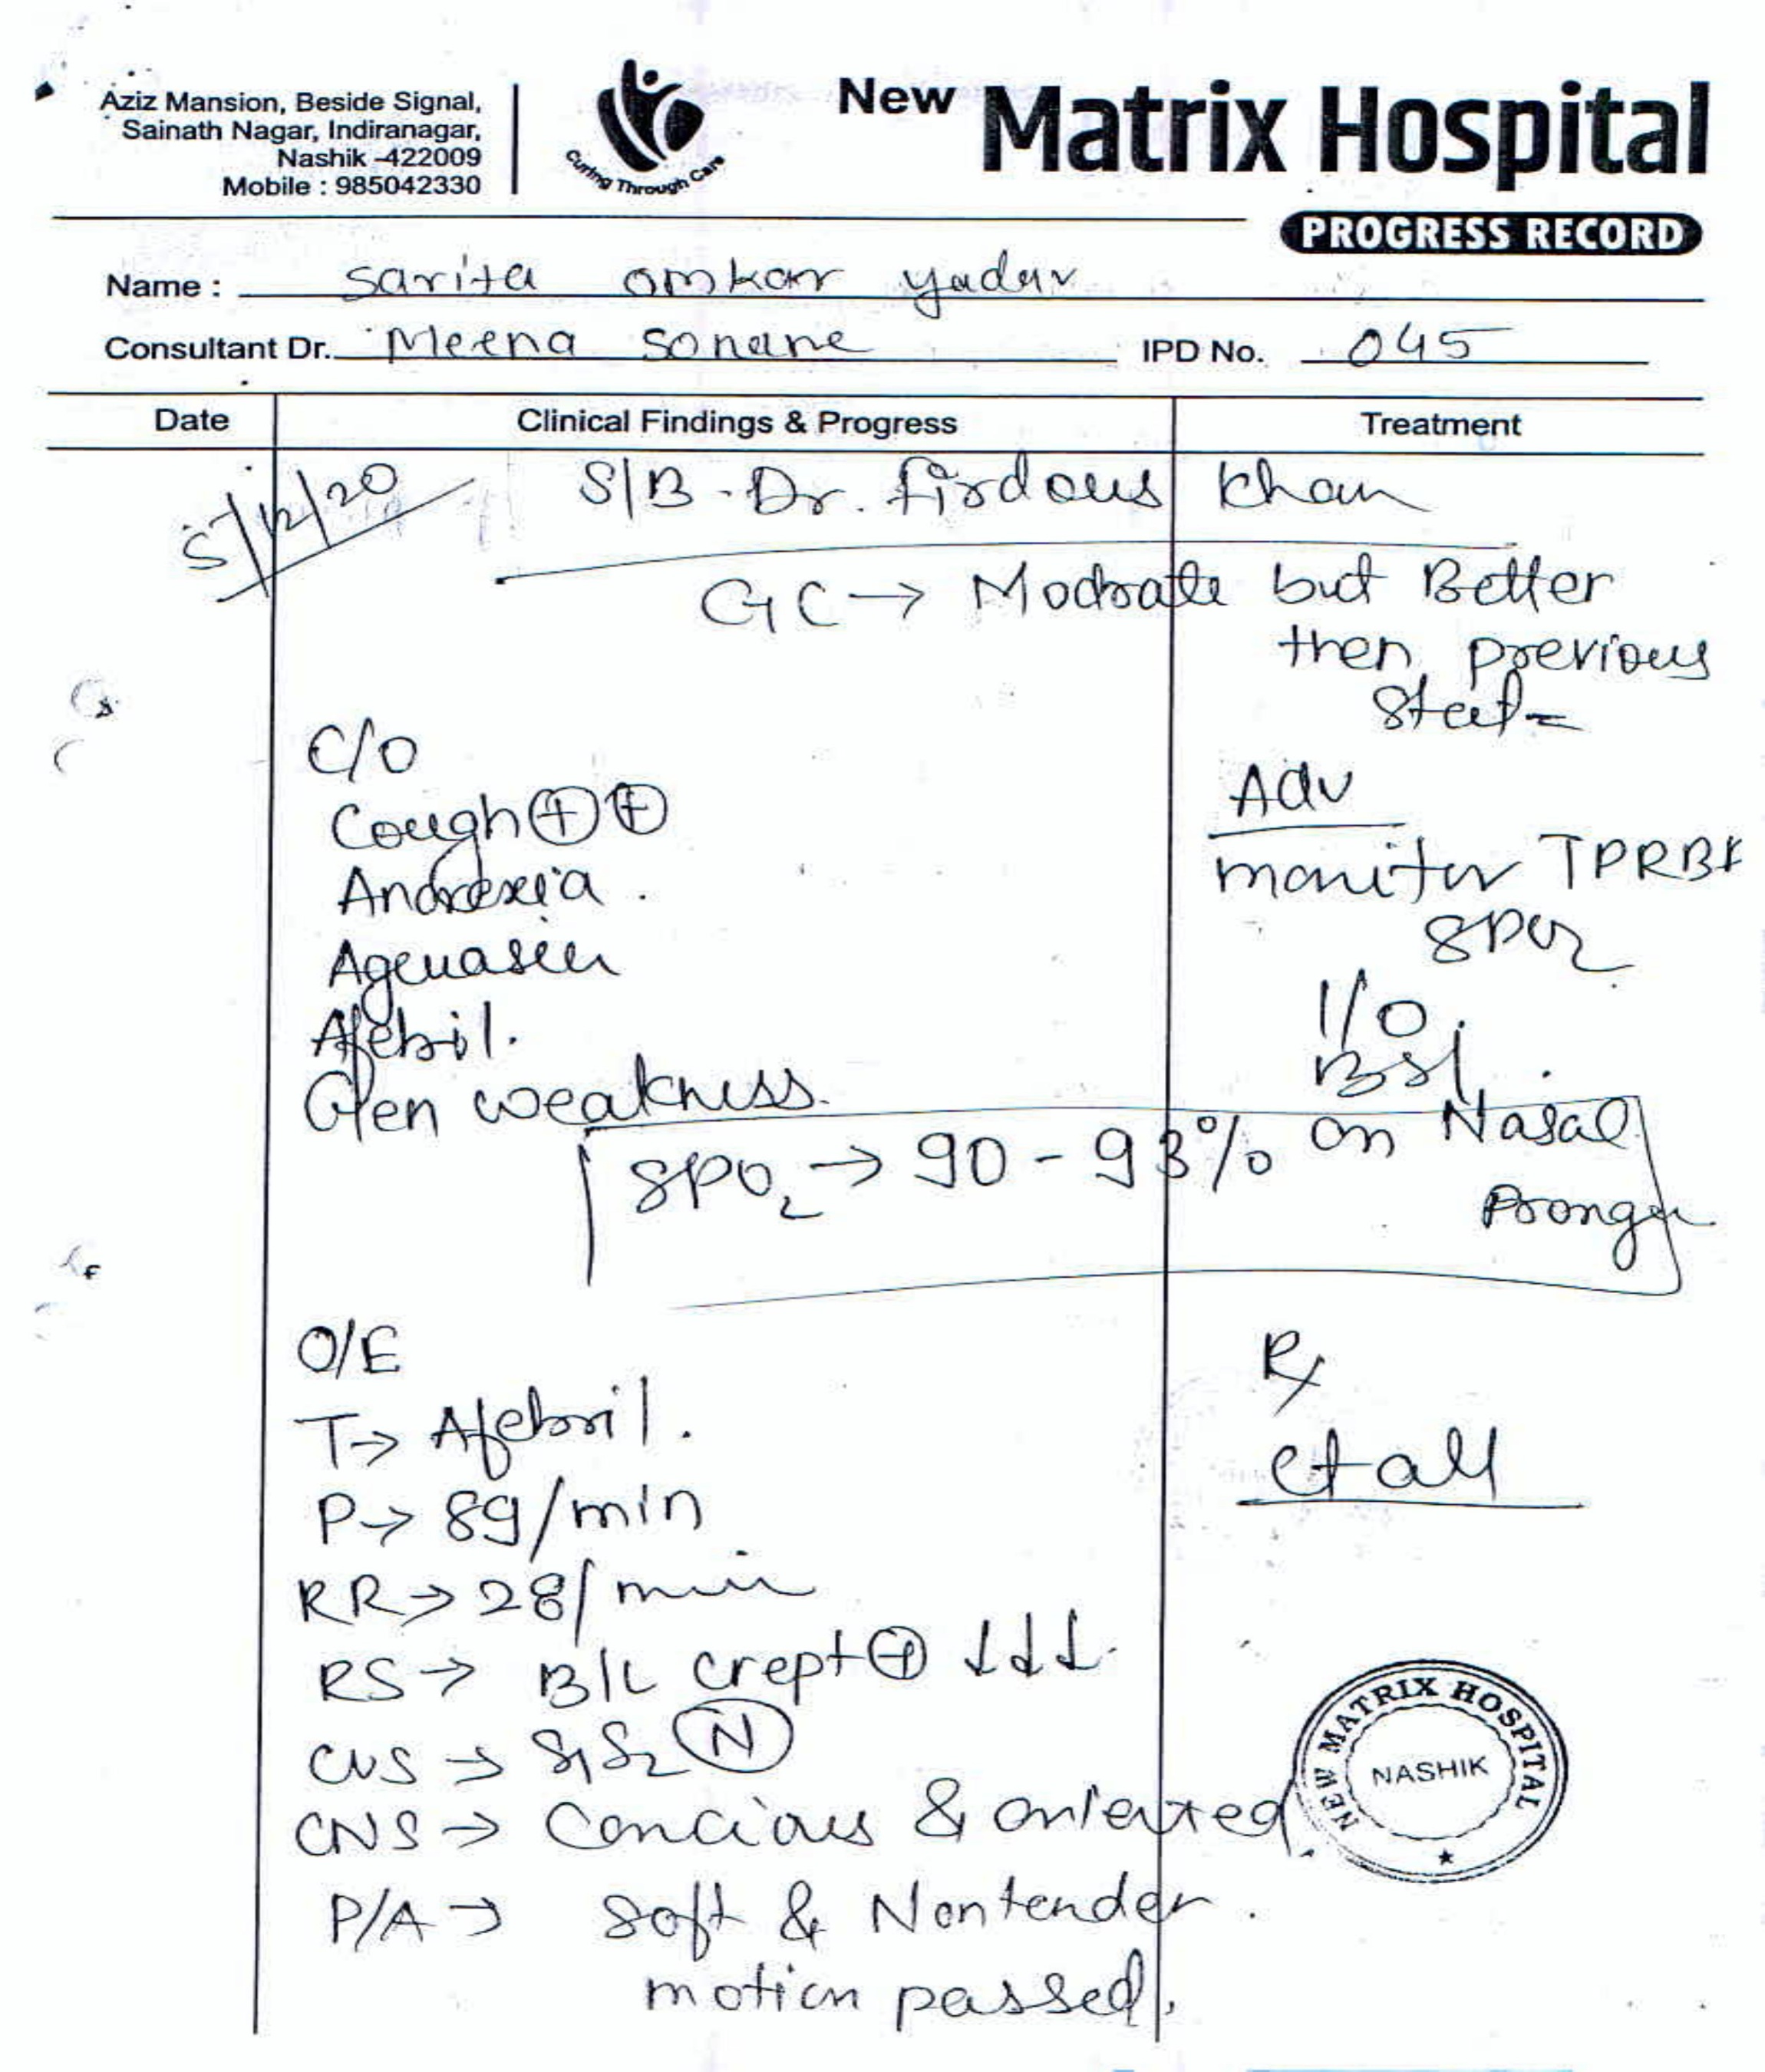 Aziz Mansion, Beside Signal,
Sainath Nagar, Indiranagar,
Nashik -422009
Mobile : 985042330
Curing Through Care
New Matrix Hospital
PROGRESS RECORD
Name : Sarita omkar yadav
Consultant Dr. Meena Sonane IPD No. 045
Date Clinical Findings & Progress Treatment
5/12/20 S/B - Dr. firdous Khan
GC → Modrate but Better
then previous
C/O
Cough ⊕ ⊕
Anorexia.
Afebril.
Gen weakness.
Adv
monitor TPRBP
SPO2
I/O
BSL
SPO2 → 90 - 93% on Nasal
Prongs
O/E
T → Afebril.
P → 89/min
RR → 28/min
RS → B/L crept ⊕ ↓↓↓
CVS → S1S2 (N)
CNS → Concious & oriented.
P/A → Soft & Nontender.
motion passed.
Rx
Ct all
NEW MATRIX HOSPITAL
NASHIK